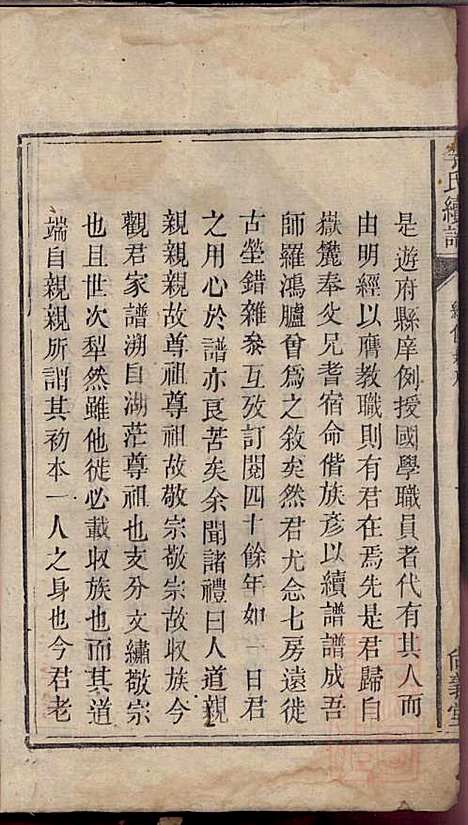 氏續譜
尚義堂
是遊府縣庠例授國學職員者代有其人而
由明經以膺教職則有君在焉先是君歸自
嶽麓奉父兄耆宿命偕族彥以續譜譜成吾
師羅鴻臚曾爲之敘矣然君尤念七房遠徙
古塋錯雜叅互攷訂閱四十餘年如一日君
之用心於譜亦良苦矣余聞諸禮曰人道親
親親親故尊祖尊祖故敬宗敬宗故收族今
觀君家譜溯自湖茫尊祖也支分文繡敬宗
也且世次犁然雖他徙必載收族也而其道
端自親親所謂其初本一人之身也今君老